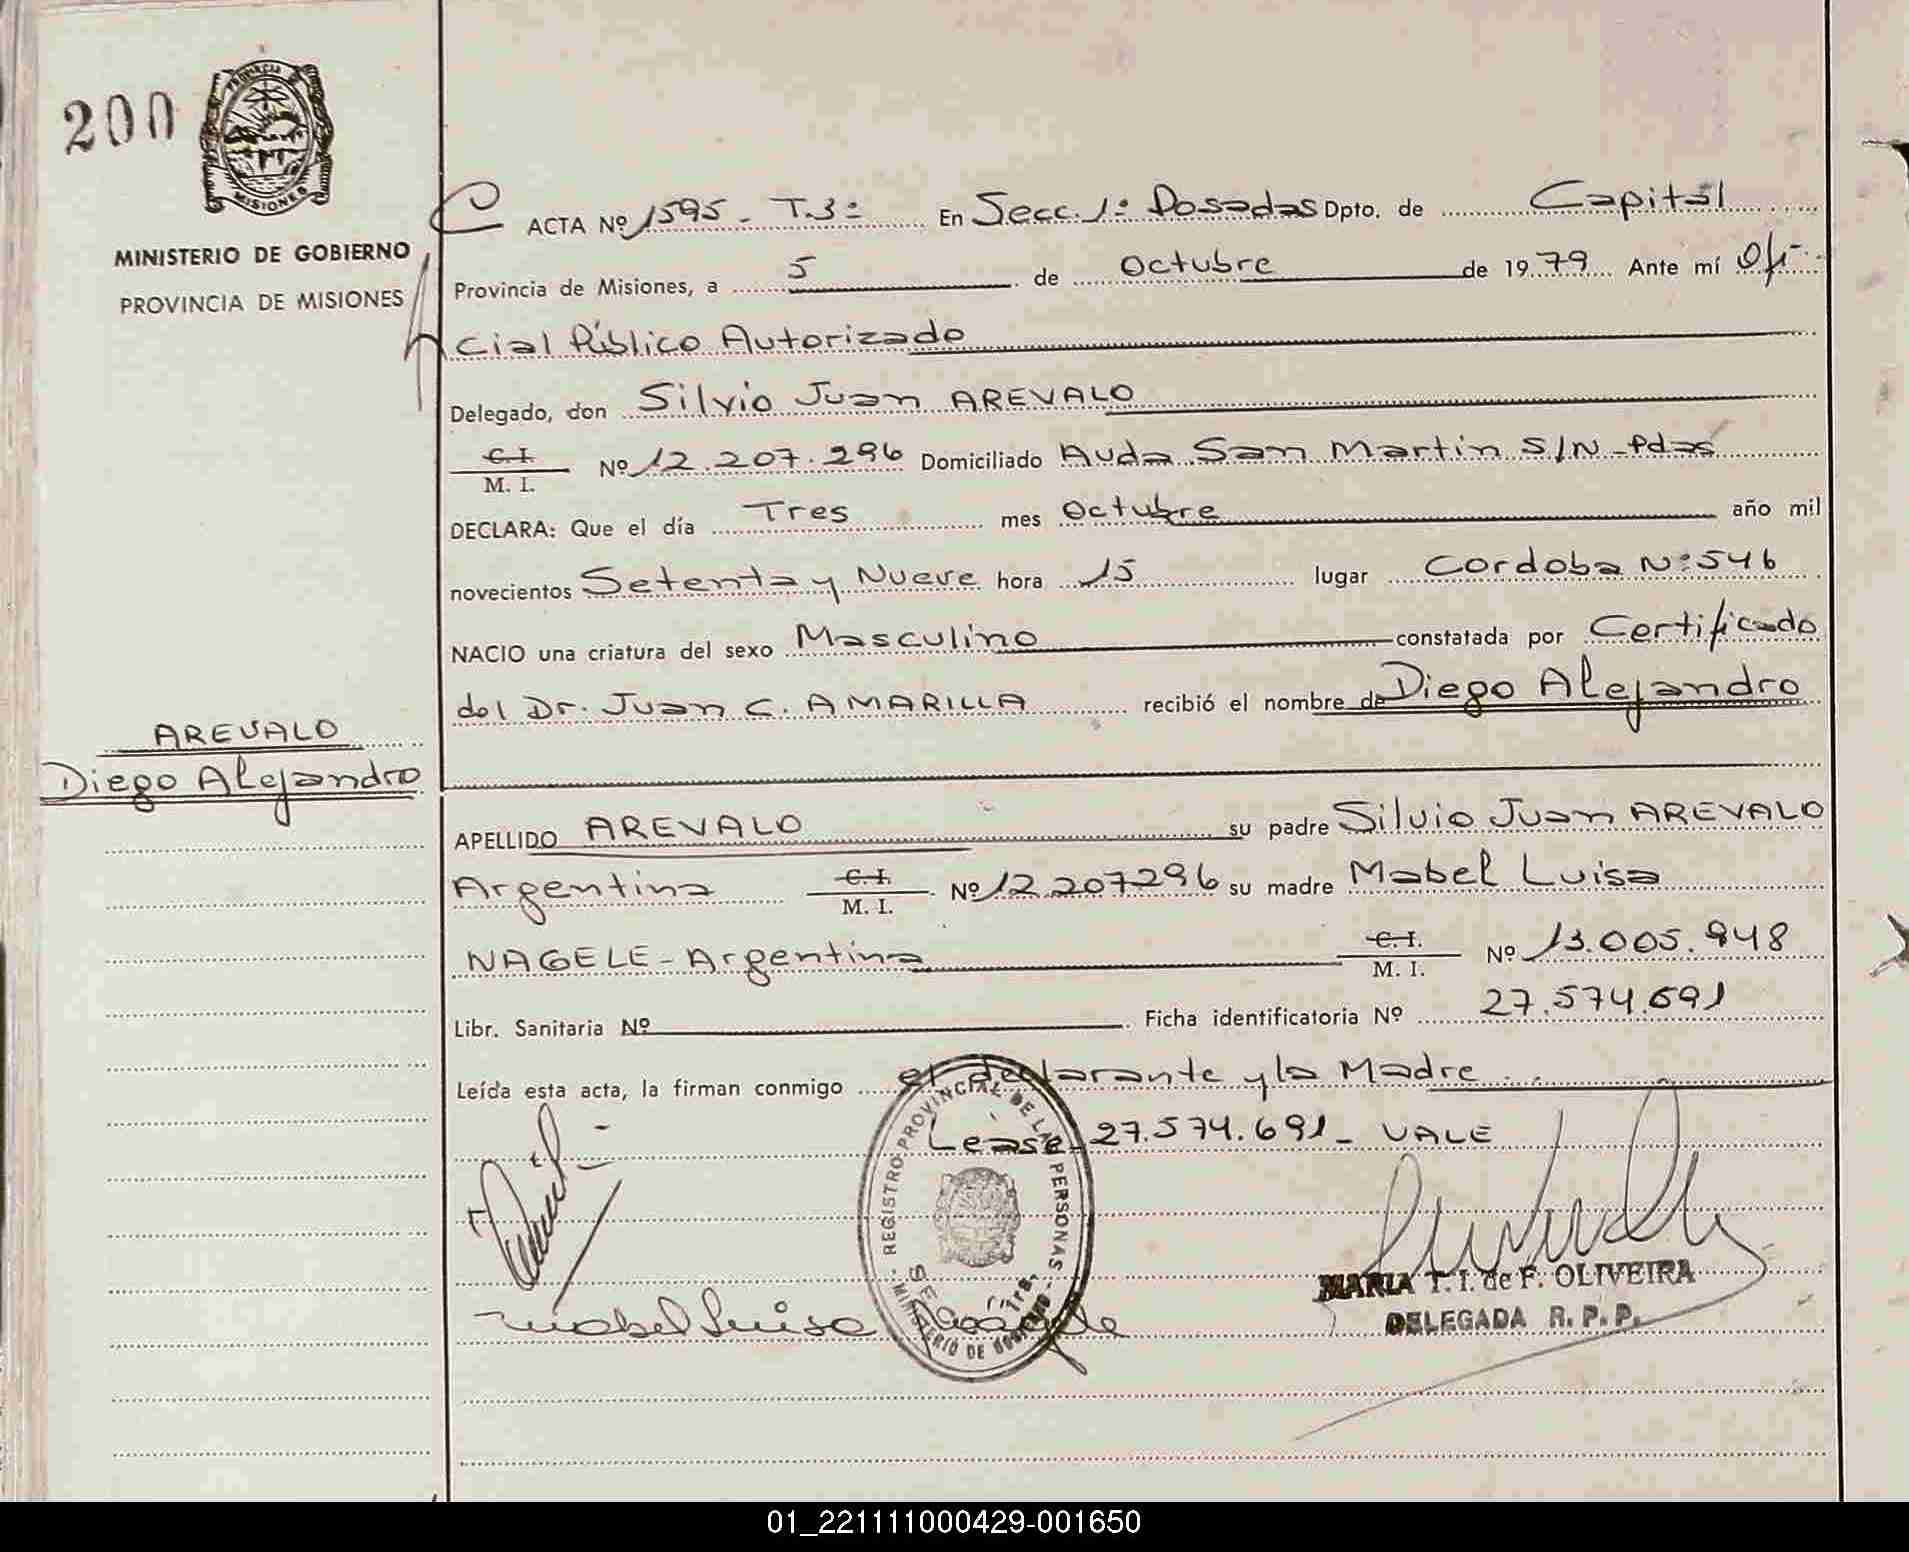 200
PROVINCIA DE
MISIONES
MINISTERIO DE GOBIERNO
PROVINCIA DE MISIONES
AREVALO
Diego Alejandro
ACTA Nº 1595 - T.3º En Secc. 1º Posadas Dpto. de Capital
Provincia de Misiones, a 5 de Octubre de 1979 Ante mí Ofi-
cial Público Autorizado
Delegado, don Silvio Juan AREVALO
C.I. M. I. Nº 12.207.296 Domiciliado Avda San Martin S/N - Pdas
DECLARA: Que el día Tres mes Octubre año mil
novecientos Setenta y Nueve hora 15 lugar Cordoba Nº 546
NACIO una criatura del sexo Masculino constatada por Certificado
del Dr. Juan C. AMARILLA recibió el nombre de Diego Alejandro
APELLIDO AREVALO su padre Silvio Juan AREVALO
Argentina C.I. M. I. Nº 12.207296 su madre Mabel Luisa
NAGELE - Argentina C.I. M. I. Nº 13.005.948
Libr. Sanitaria Nº Ficha identificatoria Nº 27.574.691
Leída esta acta, la firman conmigo el declarante y la Madre
Lease 27.574.691 - VALE
REGISTRO PROVINCIAL DE LAS PERSONAS
MINISTERIO DE GOBIERNO
Mabel Luisa Nagele
MARIA T. I. de F. OLIVEIRA
DELEGADA R. P. P.
01_221111000429-001650